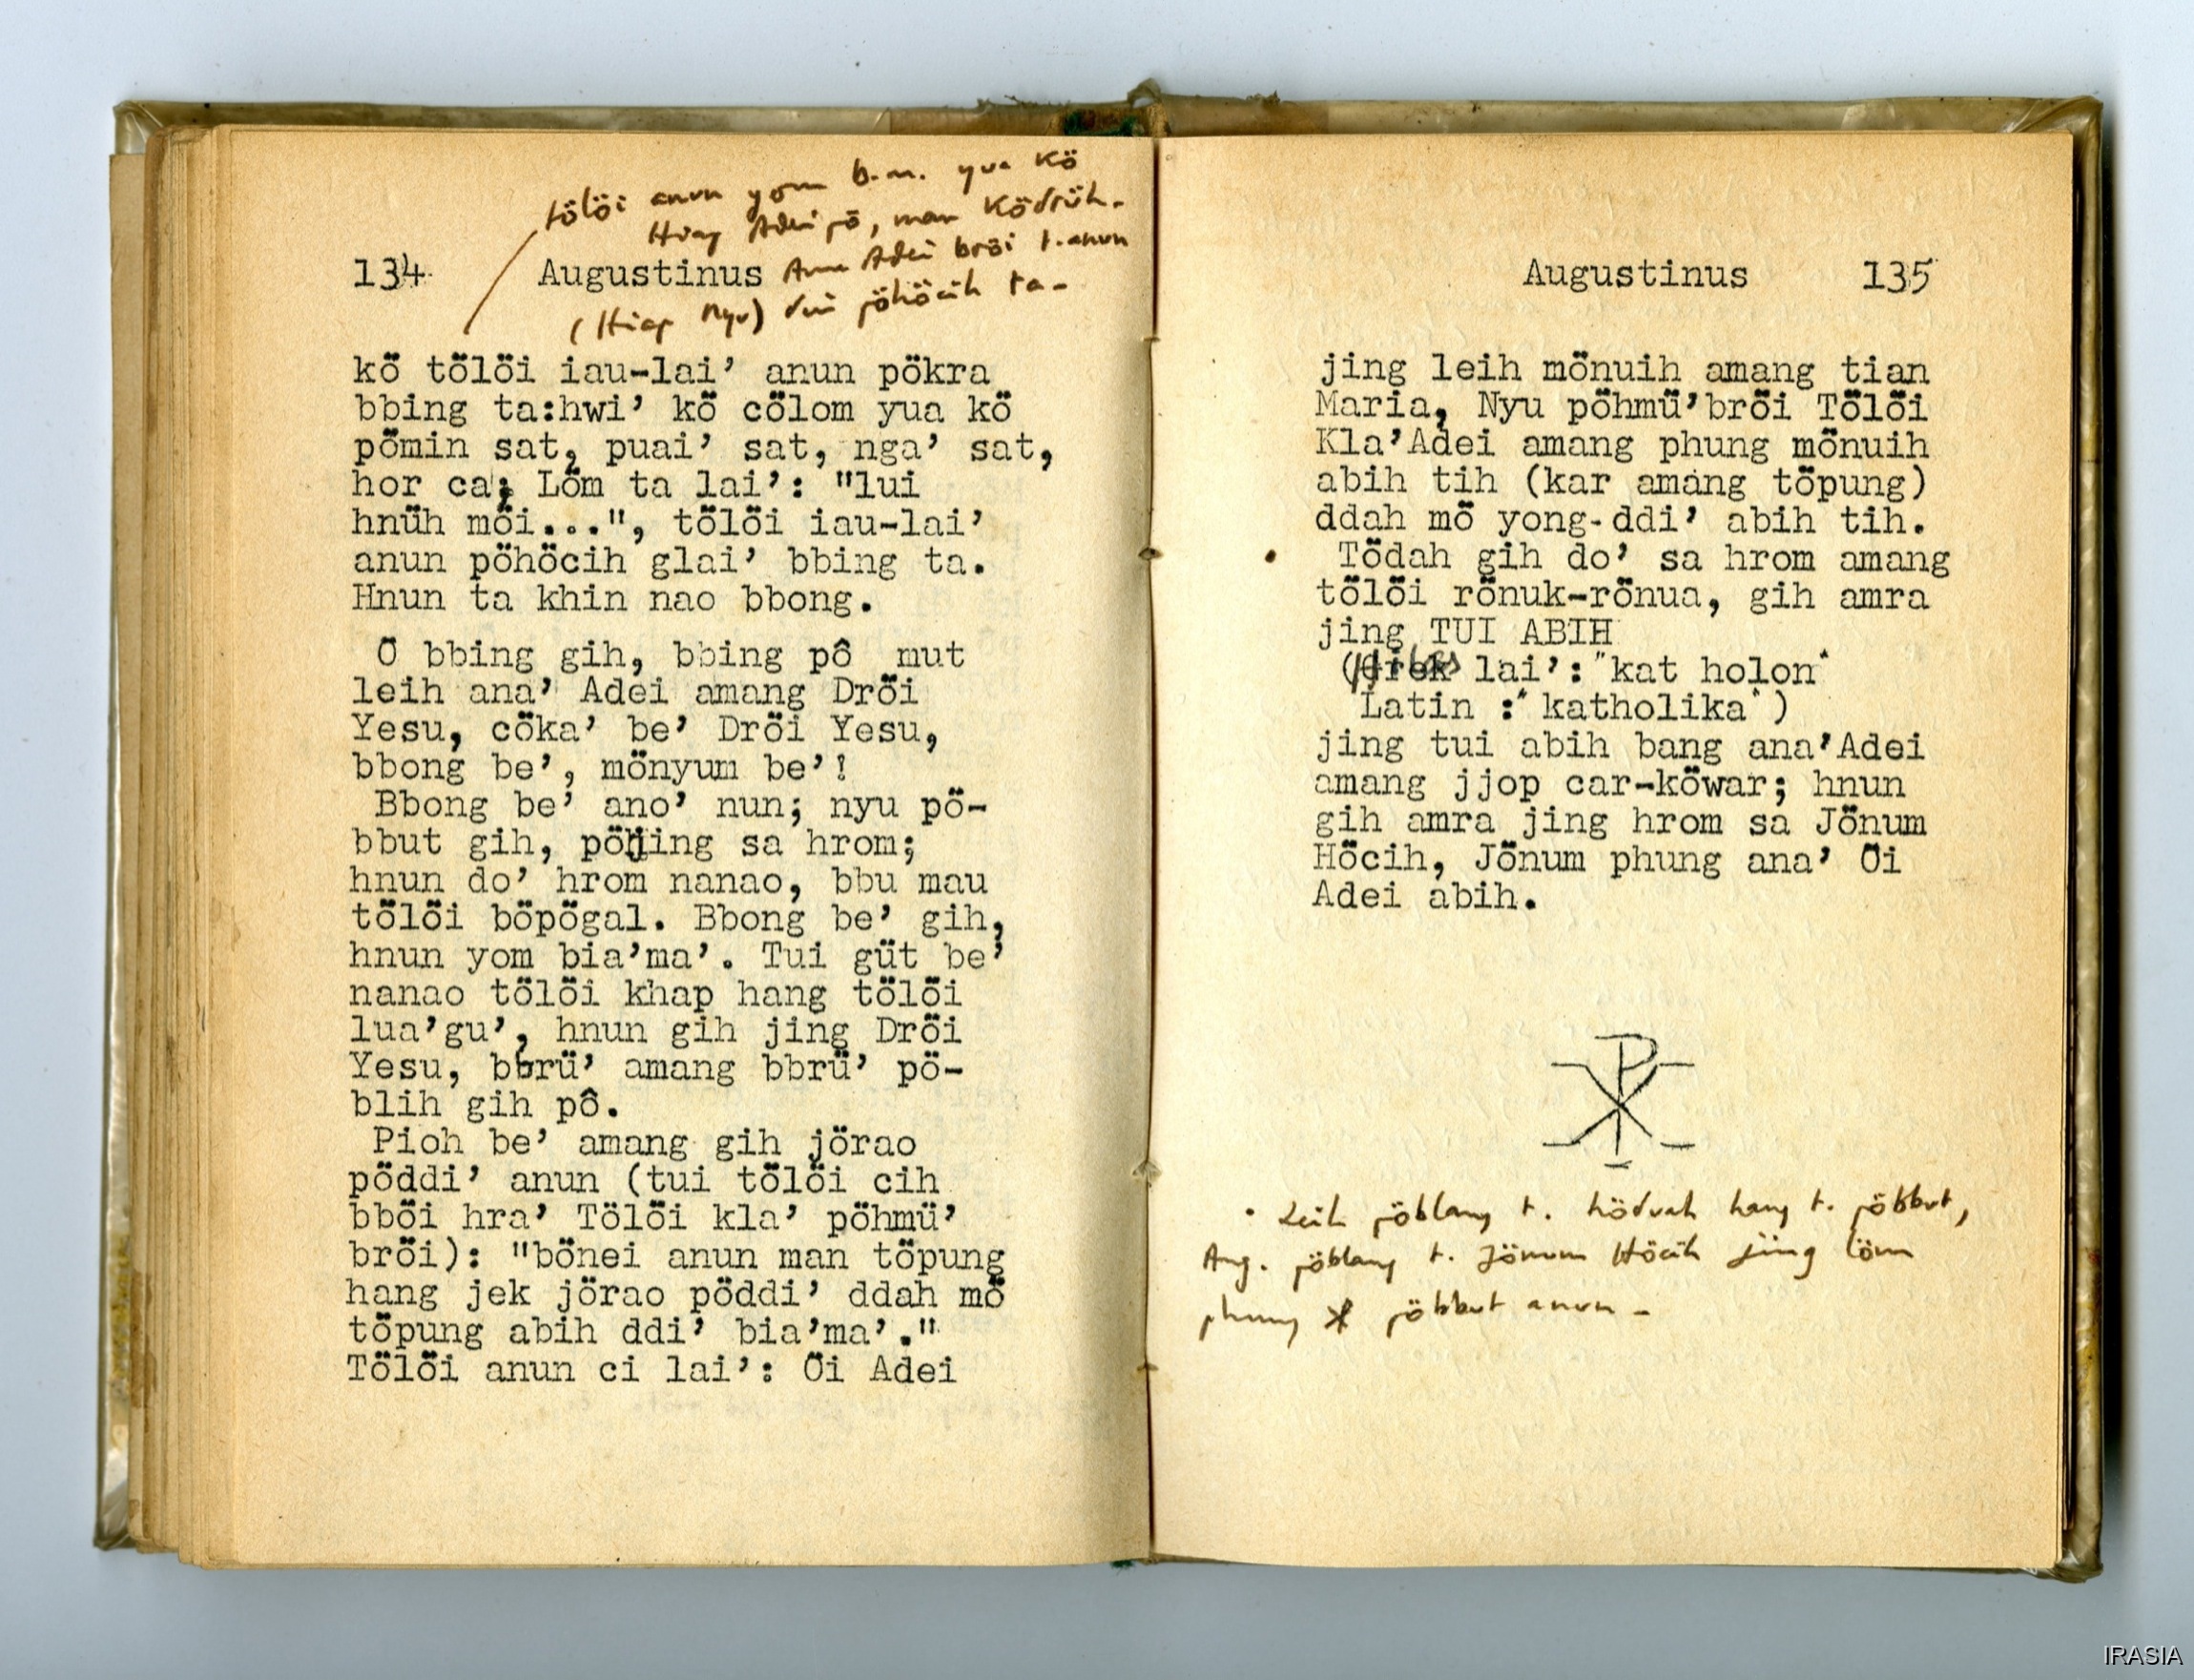 tölöi anun yom b.m. yua kö
Hiap Adei pô, man ködrüh.
134 Augustinus Ama Adei bröi t. anun
(Hiap Nyu) pöhöcih ta.
kö̆ tölö̆i iau-lai’ anun pökra
bbing ta:hwi’ kö̆ cö̆lom yua kö̆
pö̆min sat, puai’ sat, nga’ sat,
hor ca; Lö̆m ta lai’: "lui
hnüh mö̆i...", tö̆lö̆i iau-lai’
anun pöhöcih glai’ bbing ta.
Hnun ta khin nao bbong.
Ö bbing gih, bbing pô mut
leih ana’ Adei amang Drö̆i
Yesu, cöka’ be’ Dröi Yesu,
bbong be’, mönyum be’!
Bbong be’ ano’ nun; nyu pö-
bbut gih, pöjing sa hrom;
hnun do’ hrom nanao, bbu mau
tö̆lö̆i böpögal. Bbong be’ gih,
hnun yom bia’ma’. Tui güt be’
nanao tö̆lö̆i khap hang tö̆lö̆i
lua’gu’, hnun gih jing Drö̆i
Yesu, bbrü’ amang bbrü’ pö-
blih gih pô.
Pioh be’ amang gih jörao
pöddi’ anun (tui tö̆lö̆i cih
bbö̆i hra’ Tölö̆i kla’ pöhmü’
brö̆i): "bönei anun man tö̆pung
hang jek jörao pöddi’ ddah mö̆
tö̆pung abih ddi’ bia’ma’."
Tö̆lö̆i anun ci lai’: Ö̆i Adei
Augustinus 135
jing leih mö̆nuih amang tian
Maria, Nyu pö̆hmü’brö̆i Tö̆lö̆i
Kla’Adei amang phung mö̆nuih
abih tih (kar amang tö̆pung)
ddah mö̆ yong-ddi’ abih tih.
• Tö̆dah gih do’ sa hrom amang
tö̆lö̆i rö̆nuk-rö̆nua, gih amra
jing TUI ABIH
lai’:"kat holon"
Latin :"katholika")
jing tui abih bang ana’Adei
amang jjop car-kö̆war; hnun
gih amra jing hrom sa Jö̆num
Hö̆cih, Jö̆num phung ana’ Ö̆i
Adei abih.
• Leih pöblang t. höduah hang t. pöbbut,
Aug. pöblang t. Jönum Höcih jing löm
phung pöbbut anun -
IRASIA